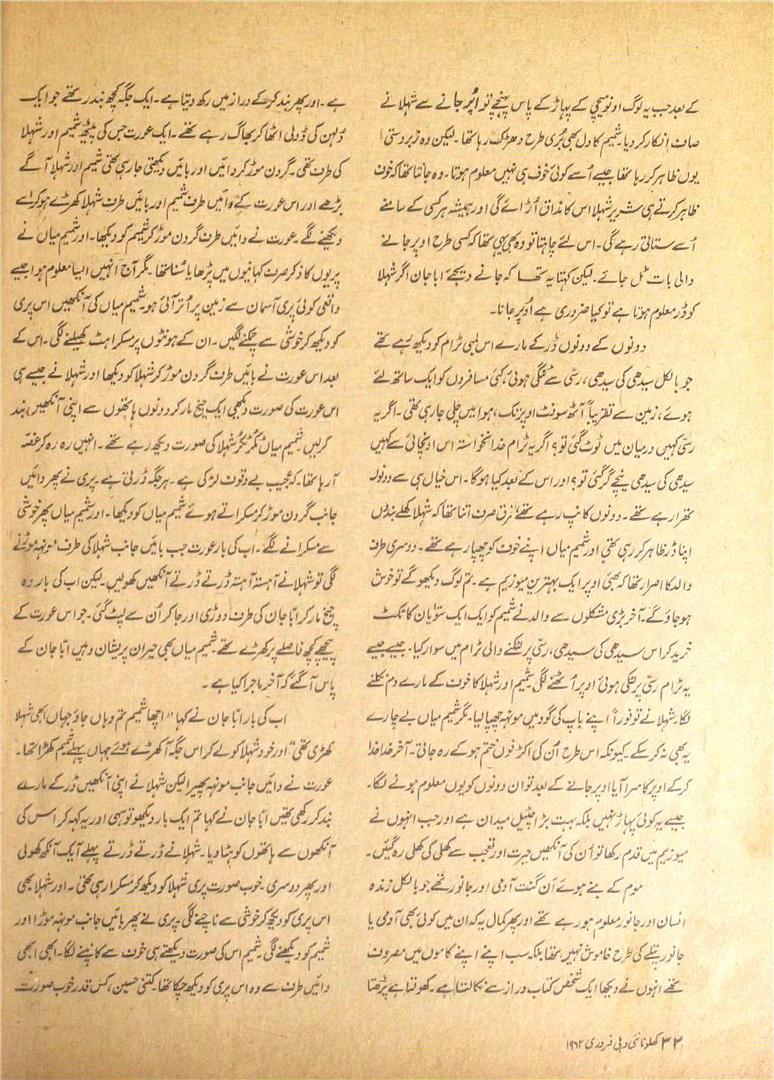 کے بعد جب یہ لوگ اونوسیجی کے پہاڑ کے پاس پہنچے تو اُوپر جانے سے شہلا نے
صاف انکار کر دیا۔ شمیم کا دل بھی بُری طرح دھڑک رہا تھا۔ لیکن وہ زبردستی
یوں ظاہر کر رہا تھا جیسے اُسے کوئی خوف ہی نہیں معلوم ہوتا۔ وہ جانتا تھا کہ خوف
ظاہر کرتے ہی شریر شہلا اس کا مذاق اُڑائے گی اور ہمیشہ ہر کسی کے سامنے
اُسے ستاتی رہے گی۔ اس لئے چاہتا تو وہ بھی یہی تھا کہ کسی طرح اوپر جانے
والی بات ٹل جائے۔ لیکن کہتا یہ تھا کہ جانے دیجئے ابا جان اگر شہلا
کو ڈر معلوم ہوتا ہے تو کیا ضروری ہے اُوپر جانا۔
دونوں کے دونوں ڈر کے مارے اس لمبی ٹرام کو دیکھ رہے تھے
جو بالکل سیدھی کی سیدھی، رسّی سے لٹکی ہوئی، کئی مسافروں کو ایک ساتھ لئے
ہوئے، زمین سے تقریباً آٹھ سو فٹ اوپر تک، ہوا میں چلی جا رہی تھی۔ اگر یہ
رسّی کہیں درمیان میں ٹوٹ گئی تو؟ اگر یہ ٹرام خدانخواستہ اس اونچائی سے کہیں
سیدھی کی سیدھی نیچے گر گئی تو؟ اور اس کے بعد کیا ہوگا۔ اس خیال ہی سے دونوں
تھرا رہے تھے۔ دونوں کانپ رہے تھے، فرق صرف اتنا تھا کہ شہلا کھلے بندوں
اپنا ڈر ظاہر کر رہی تھی اور شمیم میاں اپنے خوف کو چھپا رہے تھے۔ دوسری طرف
والد کا اصرار تھا کہ بھئی اوپر ایک بہترین میوزیم ہے۔ تم لوگ دیکھو گے تو خوش
ہو جاؤ گے۔ آخر بڑی مشکلوں سے والد نے شمیم کو ایک ایک سَو یان کا ٹکٹ
خرید کر اس سیدھی کی سیدھی، رسّی پر لٹکنے والی ٹرام میں سوار کیا۔ جیسے جیسے
یہ ٹرام رسّی پر لٹکی ہوئی اوپر اُٹھنے لگی شمیم اور شہلا کا خوف کے مارے دم نکلنے
لگا۔ شہلا نے تو فوراً اپنے باپ کی گود میں مونہہ چھپا لیا۔ مگر شمیم میاں بے چارے
یہ بھی نہ کر سکے۔ کیونکہ اس طرح اُن کی اکڑ فوں ختم ہو کے رہ جاتی۔ آخر خدا خدا
کر کے اوپر کا سرا آیا اوپر جانے کے بعد تو ان دونوں کو یوں معلوم ہونے لگا۔
جیسے یہ کوئی پہاڑ نہیں بلکہ بہت بڑا چٹیل میدان ہے اور جب انہوں نے
میوزیم میں قدم رکھا تو اُن کی آنکھیں حیرت اور تعجب سے کھلی کی کھلی رہ گئیں۔
موم کے بنے ہوئے اَن گنت آدمی اور جانور تھے جو بالکل زندہ
انسان اور جانور معلوم ہو رہے تھے اور پھر کمال یہ کہ ان میں کوئی بھی آدمی یا
جانور پتلے کی طرح خاموش نہیں تھا بلکہ سب اپنے اپنے کاموں میں مصروف
تھے انہوں نے دیکھا ایک شخص کتاب دراز سے نکالتا ہے۔ کھولتا ہے پڑھتا
ہے۔ اور پھر بند کر کے دراز میں رکھ دیتا ہے۔ ایک جگہ کچھ بندر تھے جو ایک
دُلہن کی ڈولی اٹھا کر بھاگ رہے تھے۔ ایک عورت جس کی پیٹھ شمیم اور شہلا
کی طرف تھی۔ گردن موڑ کر دائیں اور بائیں دیکھتی جا رہی تھی شمیم اور شہلا آگے
بڑھے اور اس عورت کے دائیں طرف شمیم اور بائیں طرف شہلا کھڑے ہو کر اسے
دیکھنے لگے۔ عورت نے دائیں طرف گردن موڑ کر شمیم کو دیکھا۔ اور شمیم میاں نے
پریوں کا ذکر صرف کہانیوں میں پڑھا یا سُنا تھا۔ مگر آج انہیں ایسا معلوم ہوا جیسے
واقعی کوئی پری آسمان سے زمین پر اُتر آئی ہو۔ شمیم میاں کی آنکھیں اس پری
کو دیکھ کر خوشی سے چمکنے لگیں۔ ان کے ہونٹوں پر مسکراہٹ کھیلنے لگی۔ اس کے
بعد اس عورت نے بائیں طرف گردن موڑ کر شہلا کو دیکھا اور شہلا نے جیسے ہی
اس عورت کی صورت دیکھی ایک چیخ مار کر دونوں ہاتھوں سے اپنی آنکھیں بند
کر لیں شمیم میاں ٹکر ٹکر شہلا کی صورت دیکھ رہے تھے۔ انہیں رہ رہ کر غصّہ
آ رہا تھا۔ کہ عجیب بے وقوف لڑکی ہے۔ ہر جگہ ڈرتی ہے۔ پری نے پھر دائیں
جانب گردن موڑ کر مسکراتے ہوئے شمیم میاں کو دیکھا۔ اور شمیم میاں پھر خوشی
سے مسکرانے لگے۔ اب کی بار عورت جب بائیں جانب شہلا کی طرف مونہہ موڑنے
لگی تو شہلا نے آہستہ آہستہ ڈرتے ڈرتے آنکھیں کھولیں۔ لیکن اب کی بار وہ
چیخ مار کر ابّا جان کی طرف دوڑی اور جا کر اُن سے لپٹ گئی۔ جو اس عورت کے
پیچھے کچھ فاصلے پر کھڑے تھے۔ شمیم میاں بھی حیران پریشان وہیں ابّا جان کے
پاس آ گئے کہ آخر ماجرا کیا ہے۔
اب کی بار ابّا جان نے کہا "اچھا شمیم تم وہاں جاؤ جہاں ابھی شہلا
کھڑی تھی" اور خود شہلا کو لے کر اس جگہ آ کھڑے ہوئے جہاں پہلے شمیم کھڑا تھا۔
عورت نے دائیں جانب مونہہ پھیرا لیکن شہلا نے اپنی آنکھیں ڈر کے مارے
بند کر رکھی تھیں ابّا جان نے کہا تم ایک بار دیکھو تو سہی اور یہ کہہ کر اس کی
آنکھوں سے ہاتھوں کو ہٹا دیا۔ شہلا نے ڈرتے ڈرتے پہلے ایک آنکھ کھولی
اور پھر دوسری۔ خوب صورت پری شہلا کو دیکھ کر مسکرا رہی تھی۔ اور شہلا بھی
اس پری کو دیکھ کر خوشی سے ناچنے لگی۔ پری نے پھر بائیں جانب مونہہ موڑا اور
شمیم کو دیکھنے لگی۔ شمیم اس کی صورت دیکھتے ہی خوف سے کانپنے لگا۔ ابھی ابھی
دائیں طرف سے وہ اس پری کو دیکھ چکا تھا۔ کتنی حسین، کس قدر خوب صورت
۳۲ کھلونا نئی دہلی فروری ۱۹۶۲